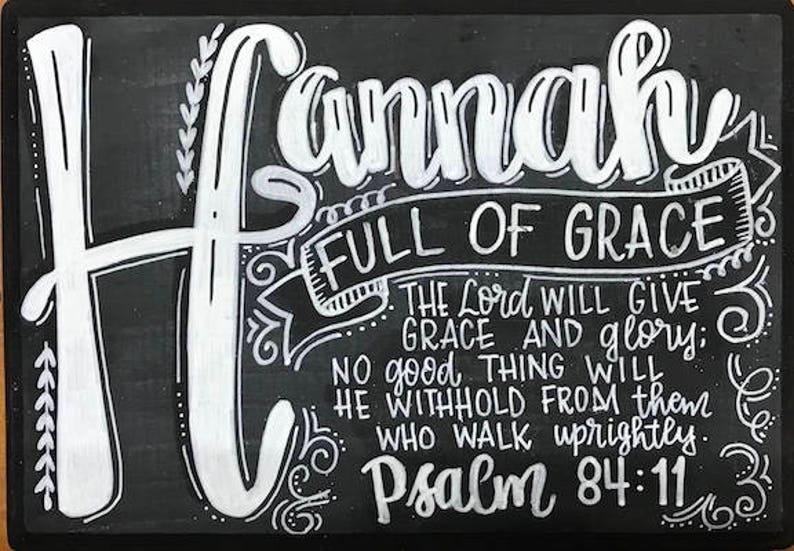 Hannah
FULL OF GRACE
THE Lord WILL GIVE
GRACE AND glory;
NO good THING WILL
HE WITHHOLD FROM them
WHO WALK uprightly.
Psalm 84:11